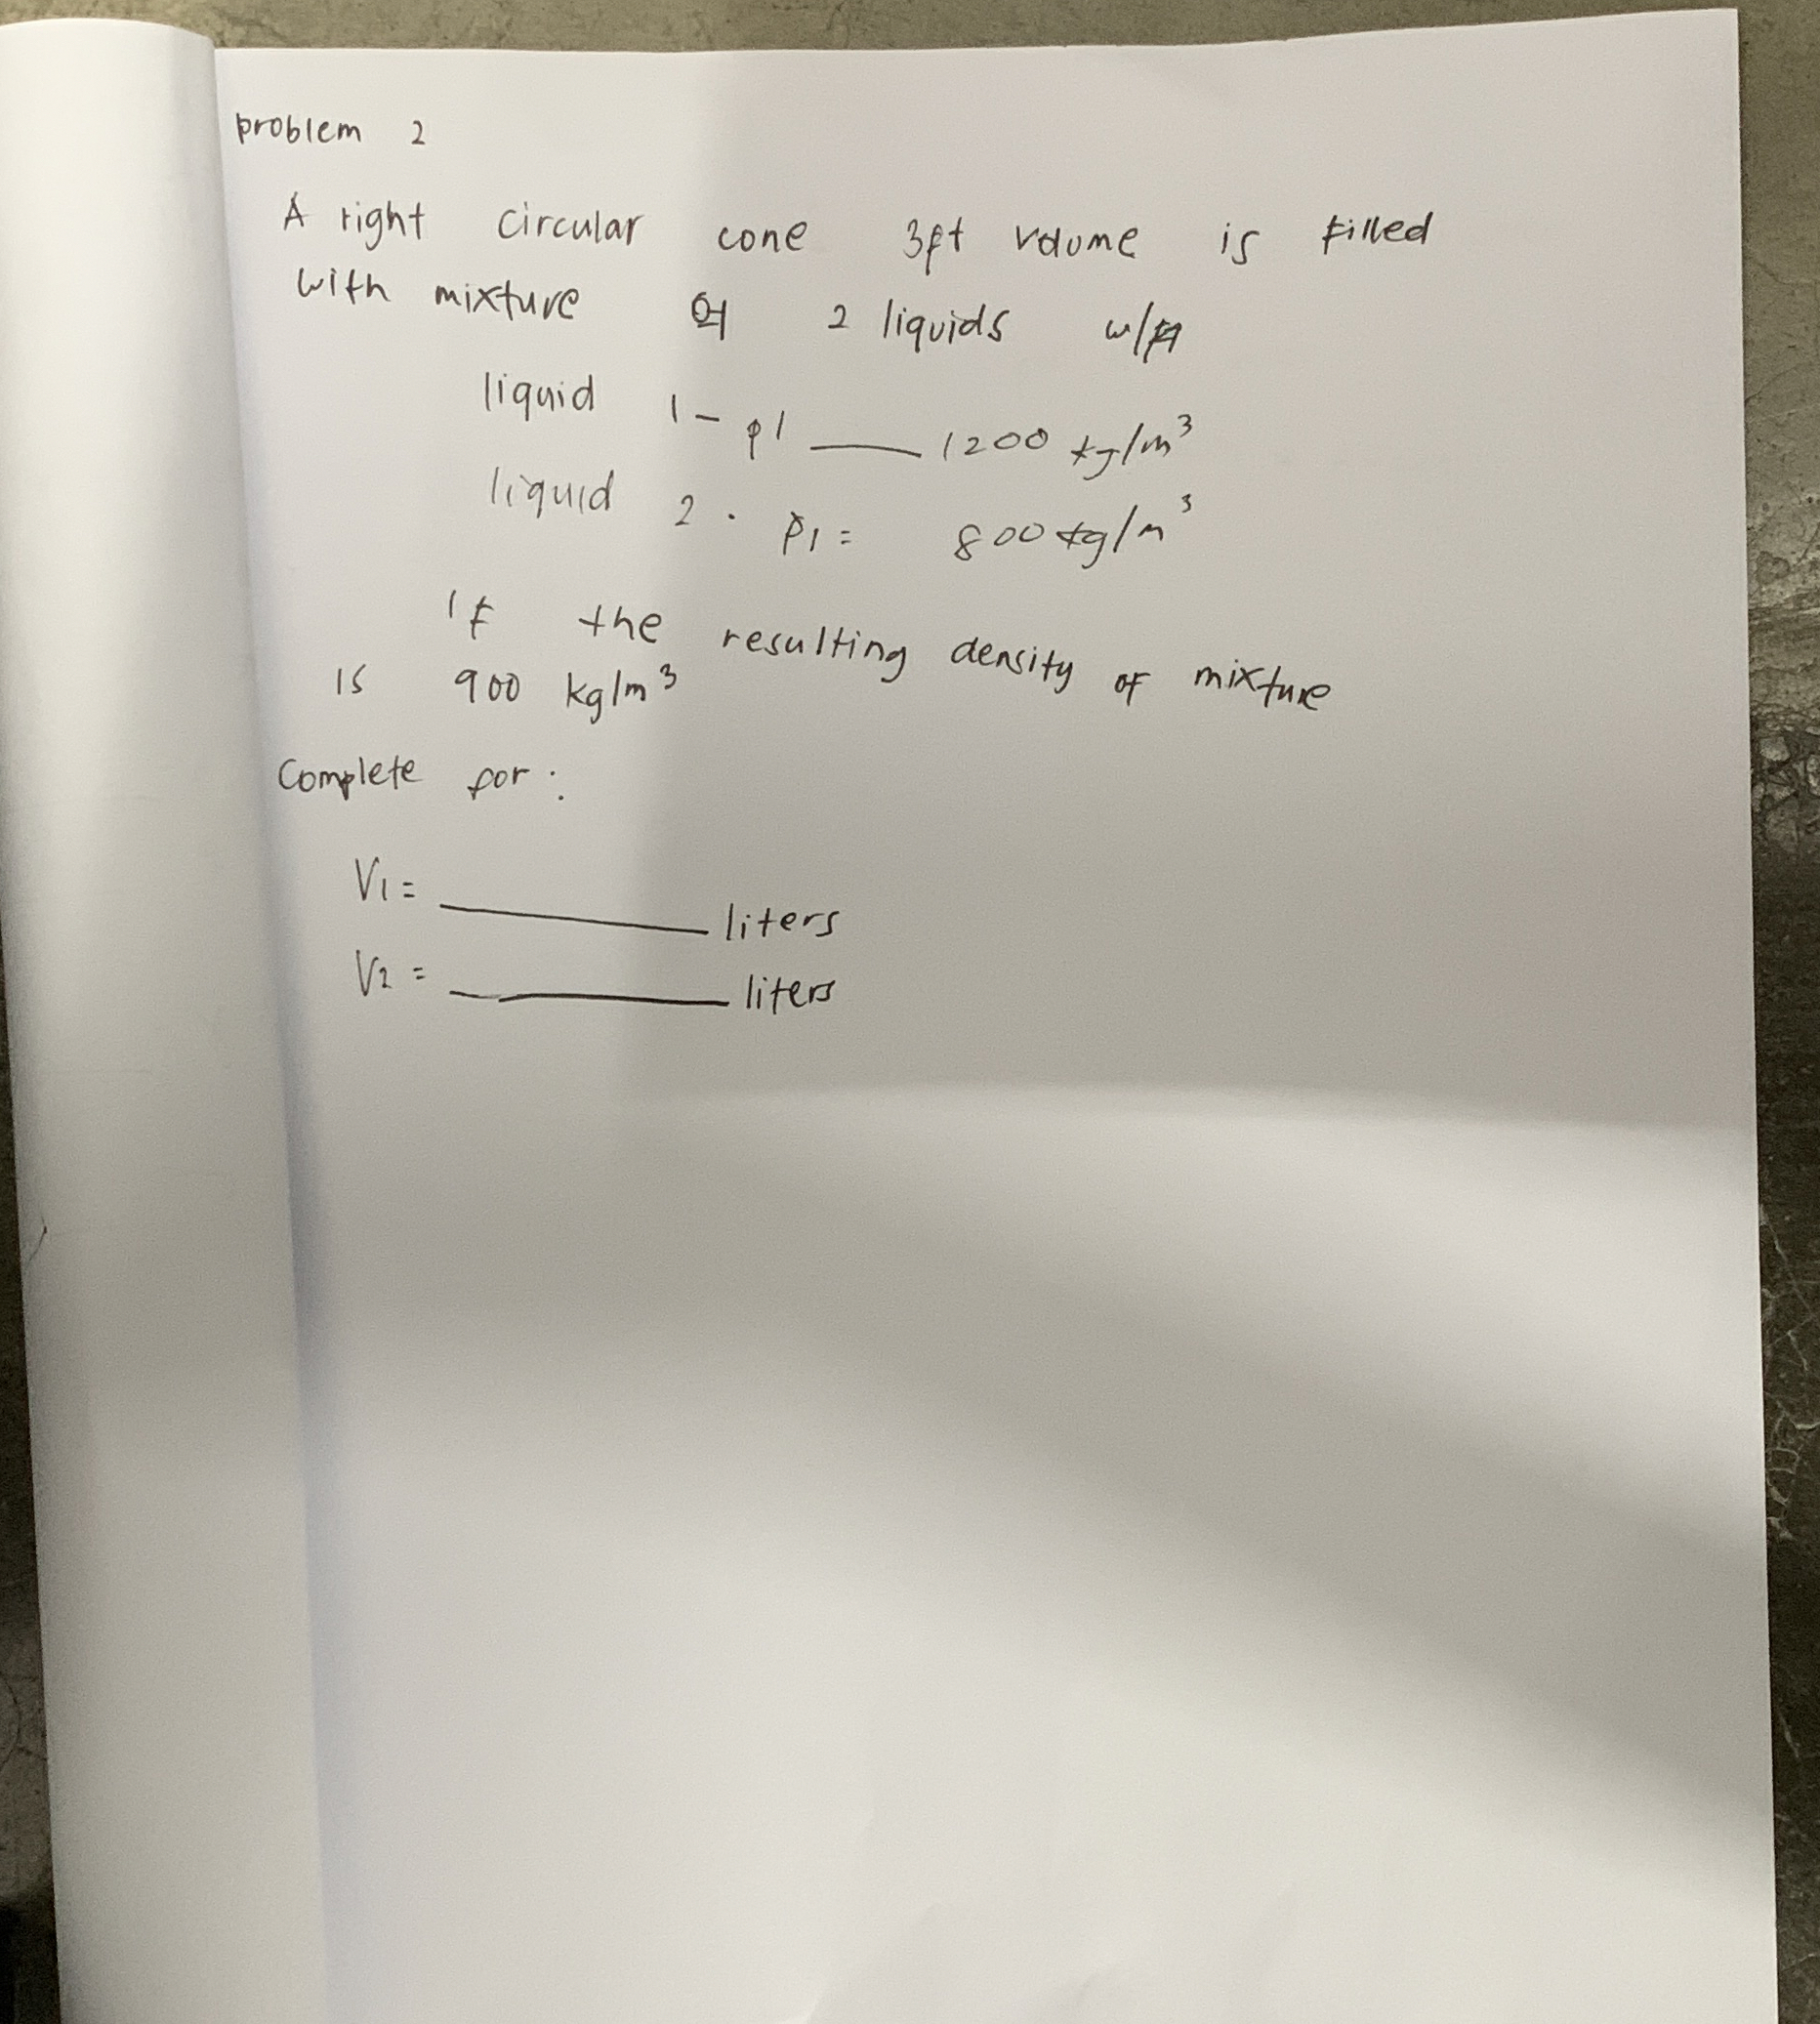 problem 2
A right circular cone 3ft volume is filled
with mixture of 2 liquids w/
liquid 1 - ρ1 ___ 1200 kg/m³
liquid 2 . ρ1 = 800 kg/m³
If the resulting density of mixture
is 900 kg/m³
Complete for :
V1 = ______ liters
V2 = ______ liters